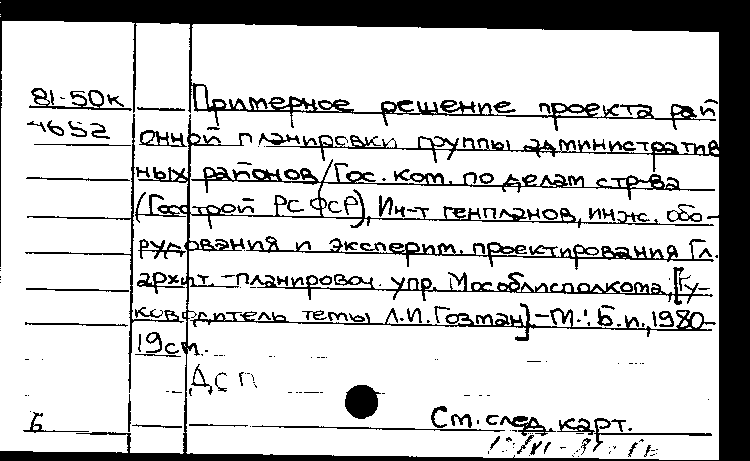 81-50к Примерное решение проекта рай
4652 онной планировки группы административ
ных районов/Гос. ком. по делам стр-ва
(Госстрой РСФСР), Ин-т генпланов, инж. обо-
рудования и эксперим. проектирования Гл.
архит.-планировоч. упр. Мособлисполкома, [Ру-
ководитель темы Л.И. Гозман].-М.: Б.и., 1980-
19см.
ДСП
Б См. след. карт.